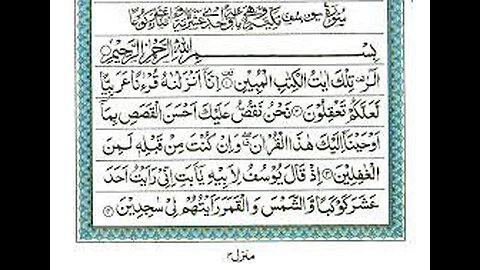 سُوْرَةُ يُوْسُفَ مَكِّيَّةٌ وَّهِيَ
بِسْمِ اللّٰهِ الرَّحْمٰنِ الرَّحِيْمِ
الٓرٰ تِلْكَ اٰيٰتُ الْكِتٰبِ الْمُبِيْنِ ۝۱ اِنَّآ اَنْزَلْنٰهُ قُرْءٰنًا عَرَبِيًّا
لَّعَلَّكُمْ تَعْقِلُوْنَ ۝۲ نَحْنُ نَقُصُّ عَلَيْكَ اَحْسَنَ الْقَصَصِ بِمَآ
اَوْحَيْنَآ اِلَيْكَ هٰذَا الْقُرْاٰنَ وَاِنْ كُنْتَ مِنْ قَبْلِهٖ لَمِنَ
الْغٰفِلِيْنَ ۝۳ اِذْ قَالَ يُوْسُفُ لِاَبِيْهِ يٰٓاَبَتِ اِنِّيْ رَاَيْتُ اَحَدَ
عَشَرَ كَوْكَبًا وَّالشَّمْسَ وَالْقَمَرَ رَاَيْتُهُمْ لِيْ سٰجِدِيْنَ ۝۴
منزل ۳